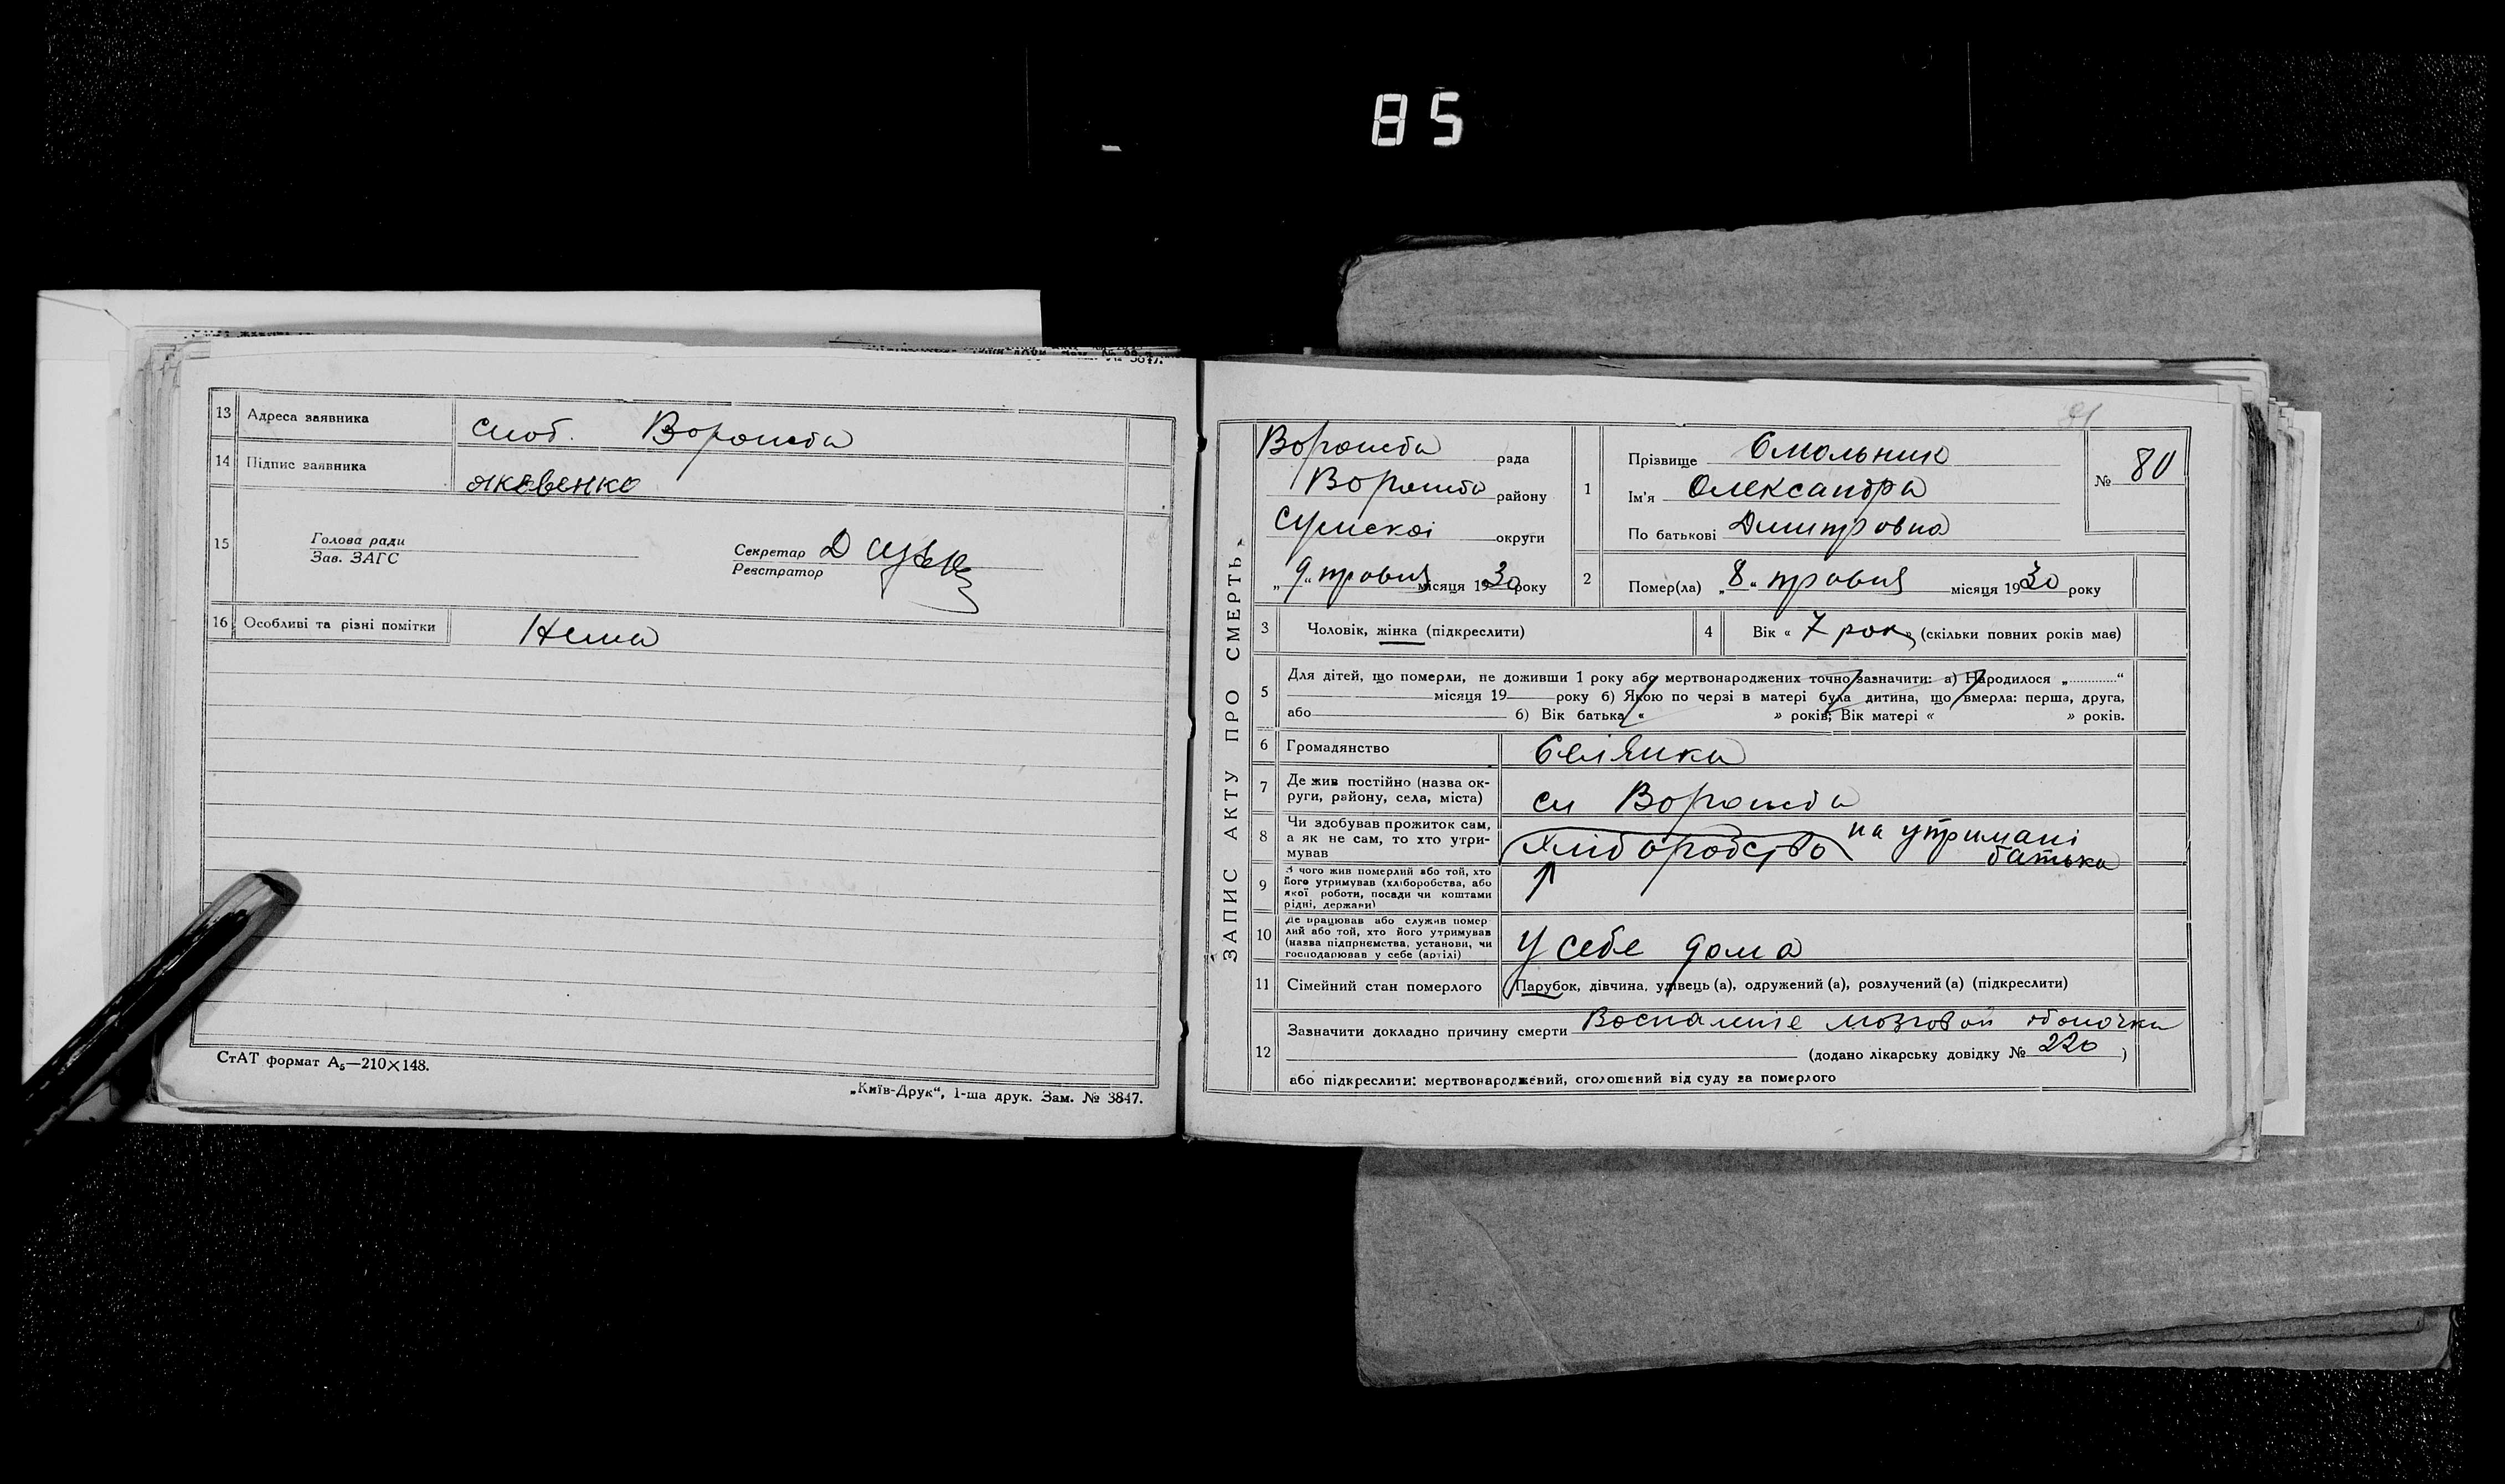 85
13 Адреса заявника слоб. Ворожба
14 Підпис заявника яковенко
15 Голова ради
Зав. ЗАГС
Секретар
Реєстратор
16 Особливі та різні помітки Нема
СтАТ формат А₅—210×148.
„Київ-Друк“, 1-ша друк. Зам. № 3847.
ЗАПИС АКТУ ПРО СМЕРТЬ
Ворожба рада
Ворожба району
Сумскої округи
„9“ травня місяця 1930 року
81
1 Прізвище Смольник
Ім'я Олександра
По батькові Дмитровна
№ 80
2 Помер(ла) „8“ травня місяця 1930 року
3 Чоловік, жінка (підкреслити)
4 Вік « 7 рок » (скільки повних років має)
5 Для дітей, що померли, не доживши 1 року або мертвонароджених точно зазначити: а) Народилося „..........“
місяця 19 року б) Якою по черзі в матері була дитина, що вмерла: перша, друга,
або б) Вік батька « » років; Вік матері « » років.
6 Громадянство Селянка
7 Де жив постійно (назва ок-
руги, району, села, міста) сл Ворожба
8 Чи здобував прожиток сам,
а як не сам, то хто утри-
мував Хліборобство на утримані
батька
9 З чого жив померлий або той, хто
його утримував (хліборобства, або
якої роботи, посади чи коштами
рідні, держави)
10 Де працював або служив помер
лий або той, хто його утримував
(назва підприємства, установи, чи
господарював у себе (артілі) У себе дома
11 Сімейний стан померлого Парубок, дівчина, удівець (а), одружений (а), розлучений (а) (підкреслити)
12 Зазначити докладно причину смерти Воспаление мозговой оболочки
(додано лікарську довідку № 220 )
або підкреслити: мертвонароджений, оголошений від суду за померлого